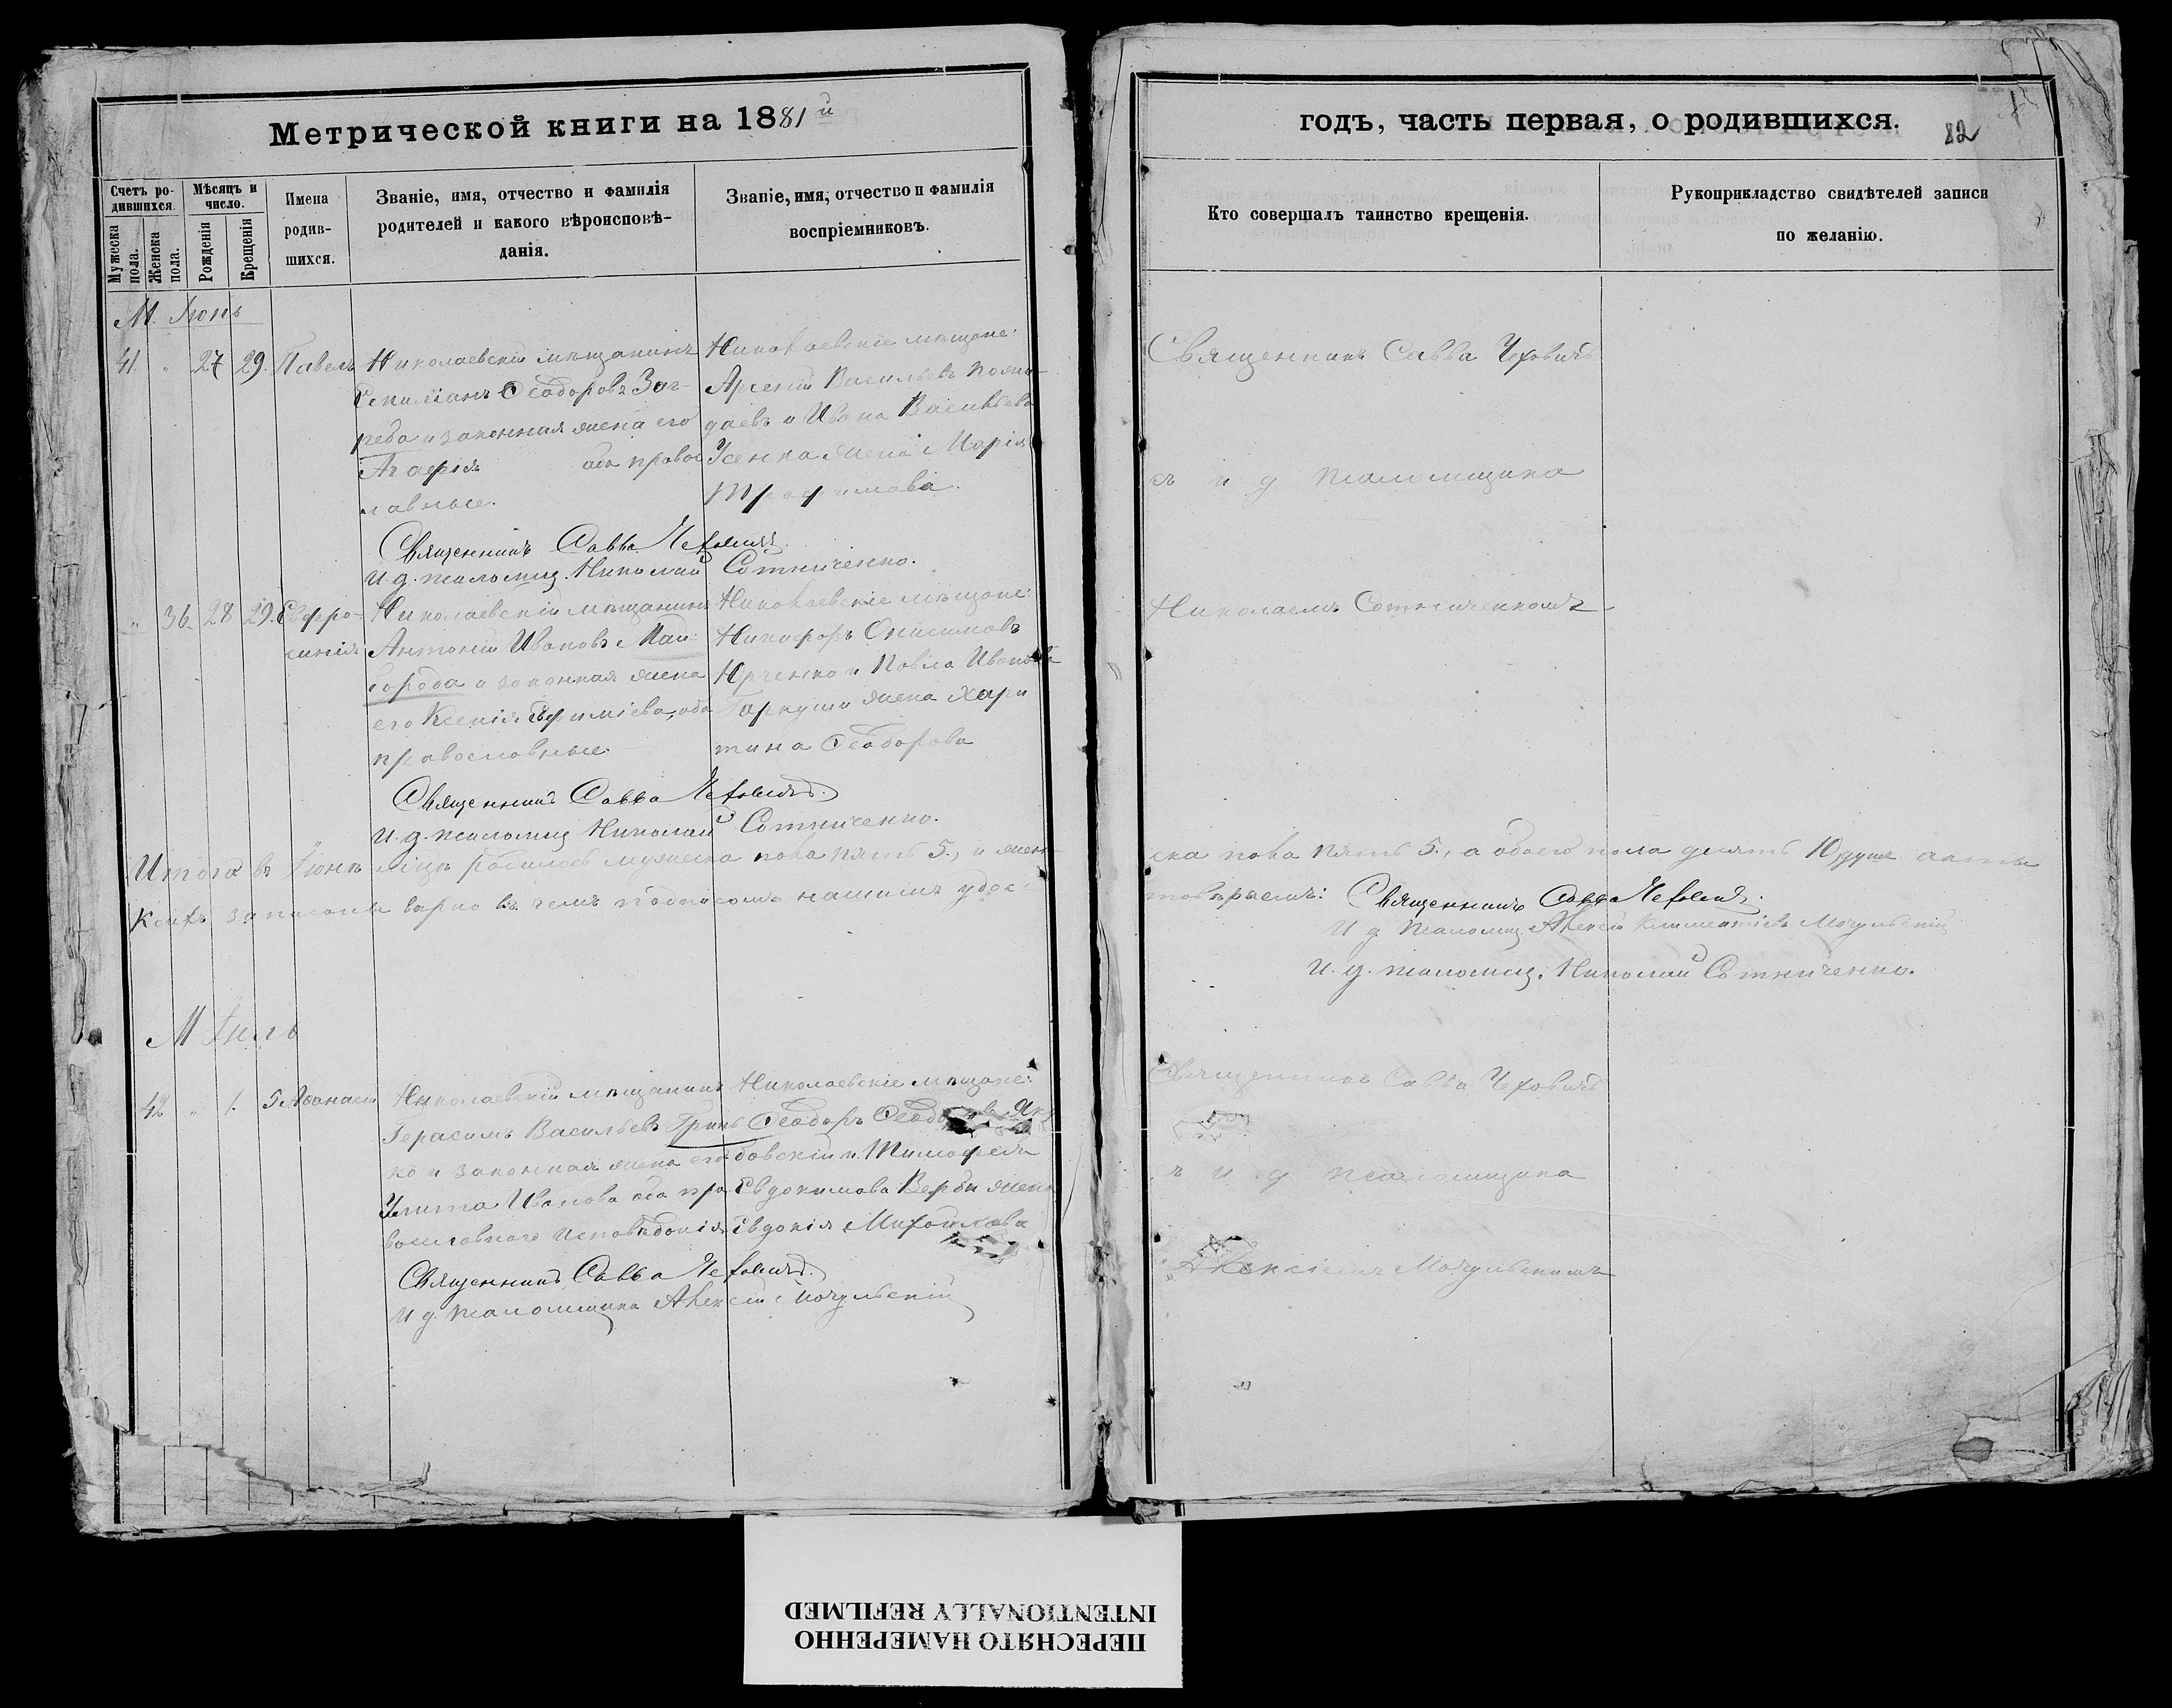 Метрической книги на 1881й
Счетъ ро-
дившихся.
Мужеска пола.
Женска пола.
Мѣсяцъ и
число.
Рожденія
Крещенія
Имена
родив-
шихся.
Званіе, имя, отчество и фамилія
родителей и какого вѣроисповѣ-
данія.
Званіе, имя, отчество и фамилія
воспріемниковъ.
М. Іюнь
41. " 27 29. Павелъ
Николаевскій мѣщанинъ
Емиліанъ Ѳеодоровъ Заг-
реба и законная жена его
Агафія оба правос
лавные.
Николаевскіе мѣщане:
Арсеній Васильевъ
и Ивана Васильева
Усенка жена Марія
Трофимова.
Священникъ Савва Чеховичъ.
И. д. псаломщ. Николай Сотниченко.
" 36. 28 29. Евфро-
синія
Николаевскій мѣщанинъ
Антоній Ивановъ Май-
борода и законная жена
его Ксенія Ефиміева, оба
православные.
Николаевскіе мѣщане:
Никифоръ Онисимовъ
Юрченко и Павла Иванова
Гаркуши жена Хари
тина Ѳеодорова
Священникъ Савва Чеховичъ.
И. д. псаломщ Николай Сотниченко.
Итого въ Іюнѣ мѣцѣ родилось мужеска пола пять 5., и жен-
коихъ записаны вѣрно въ чемъ подписомъ нашимъ удос-
М Іюль
42 " 1. 5 Аѳанасій
Николаевскій мѣщанинъ
Герасимъ Васильевъ Гринь
ко и законная жена его
Улита Иванова оба пра
вославного исповѣданія
Николаевскіе мѣщане:
Ѳеодоръ Яку
бовскій и Тимофея
Евдокимова Вербы жена
Евдокія Михайлова
Священникъ Савва Чеховичъ.
И д. псаломщика Алексій Мочульскій
годъ, часть первая, о родившихся.
82
Кто совершалъ таинство крещенія.
Рукоприкладство свидѣтелей записи
по желанію.
Священникъ Савва Чеховичъ
съ и д псаломщика
Николаемъ Сотниченкомъ
ска пола пять 5., а обоего пола десять 10 душъ акты
товѣряемъ: Священникъ Савва Чеховичъ.
И д псаломщ. Алексій Климентіевъ Мочульскій
И. д. псаломщ. Николай Сотниченко.
Священникъ Савва Чеховичъ
ъ и д псаломщика
Алексіемъ Мочульскимъ
ПЕРЕСНЯТО НАМЕРЕННО
INTENTIONALLY REFILMED